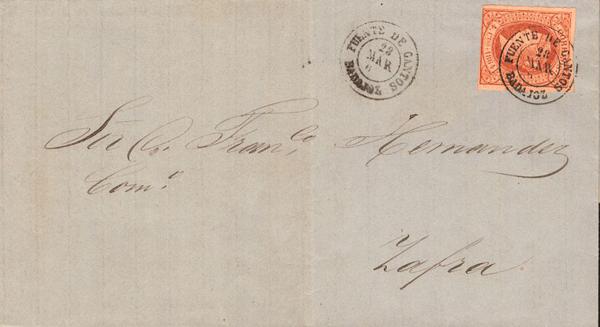 FUENTE DE CANTOS
28
MAR
6
BADAJOZ
FUENTE DE CANTOS
28
MAR
BADAJOZ
Sr D. Fran.co Hernandez
Com.te
Zafra